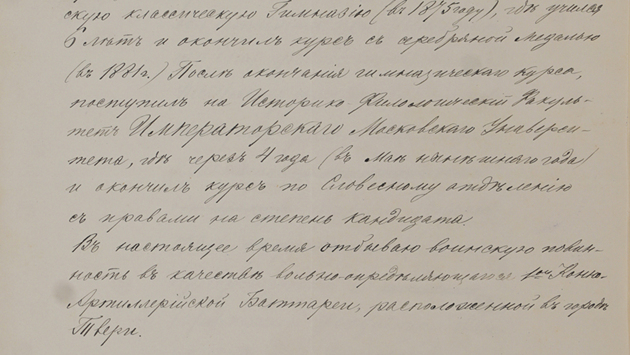 скую классическую Гимназію (въ 1875 году), гдѣ учился
6 лѣтъ и окончилъ курсъ съ серебряной медалью
(въ 1881 г.) Послѣ окончанія гимназическаго курса,
поступилъ на Историко Филологическій Факуль-
тетъ Императорскаго Московскаго Универси-
тета, гдѣ черезъ 4 года (въ Маѣ нынѣшняго года)
и окончилъ курсъ по Словесному отдѣленію
съ правами на степень кандидата.
Въ настоящее время отбываю воинскую повин-
ность въ качествѣ вольно-опредѣляющагося 1ой Конно-
Артиллерійской Баттареи, расположенной въ городѣ
Твери.